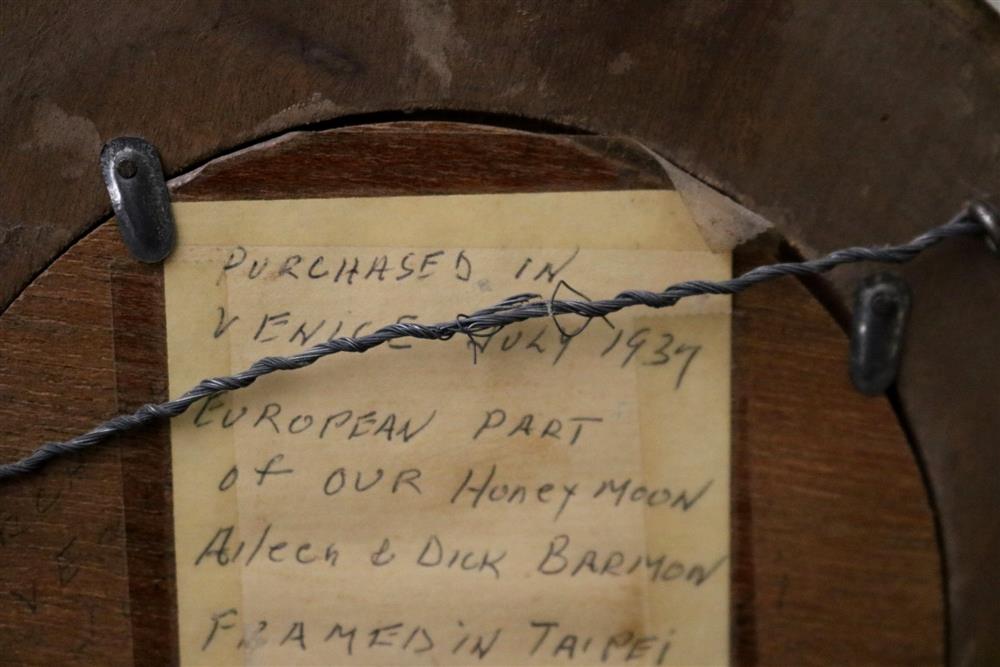 PURCHASED IN
VENICE JULY 1937
EUROPEAN PART
OF OUR HoneyMOON
Aileen & DICK BARMON
FRAMED iN TAIPEi